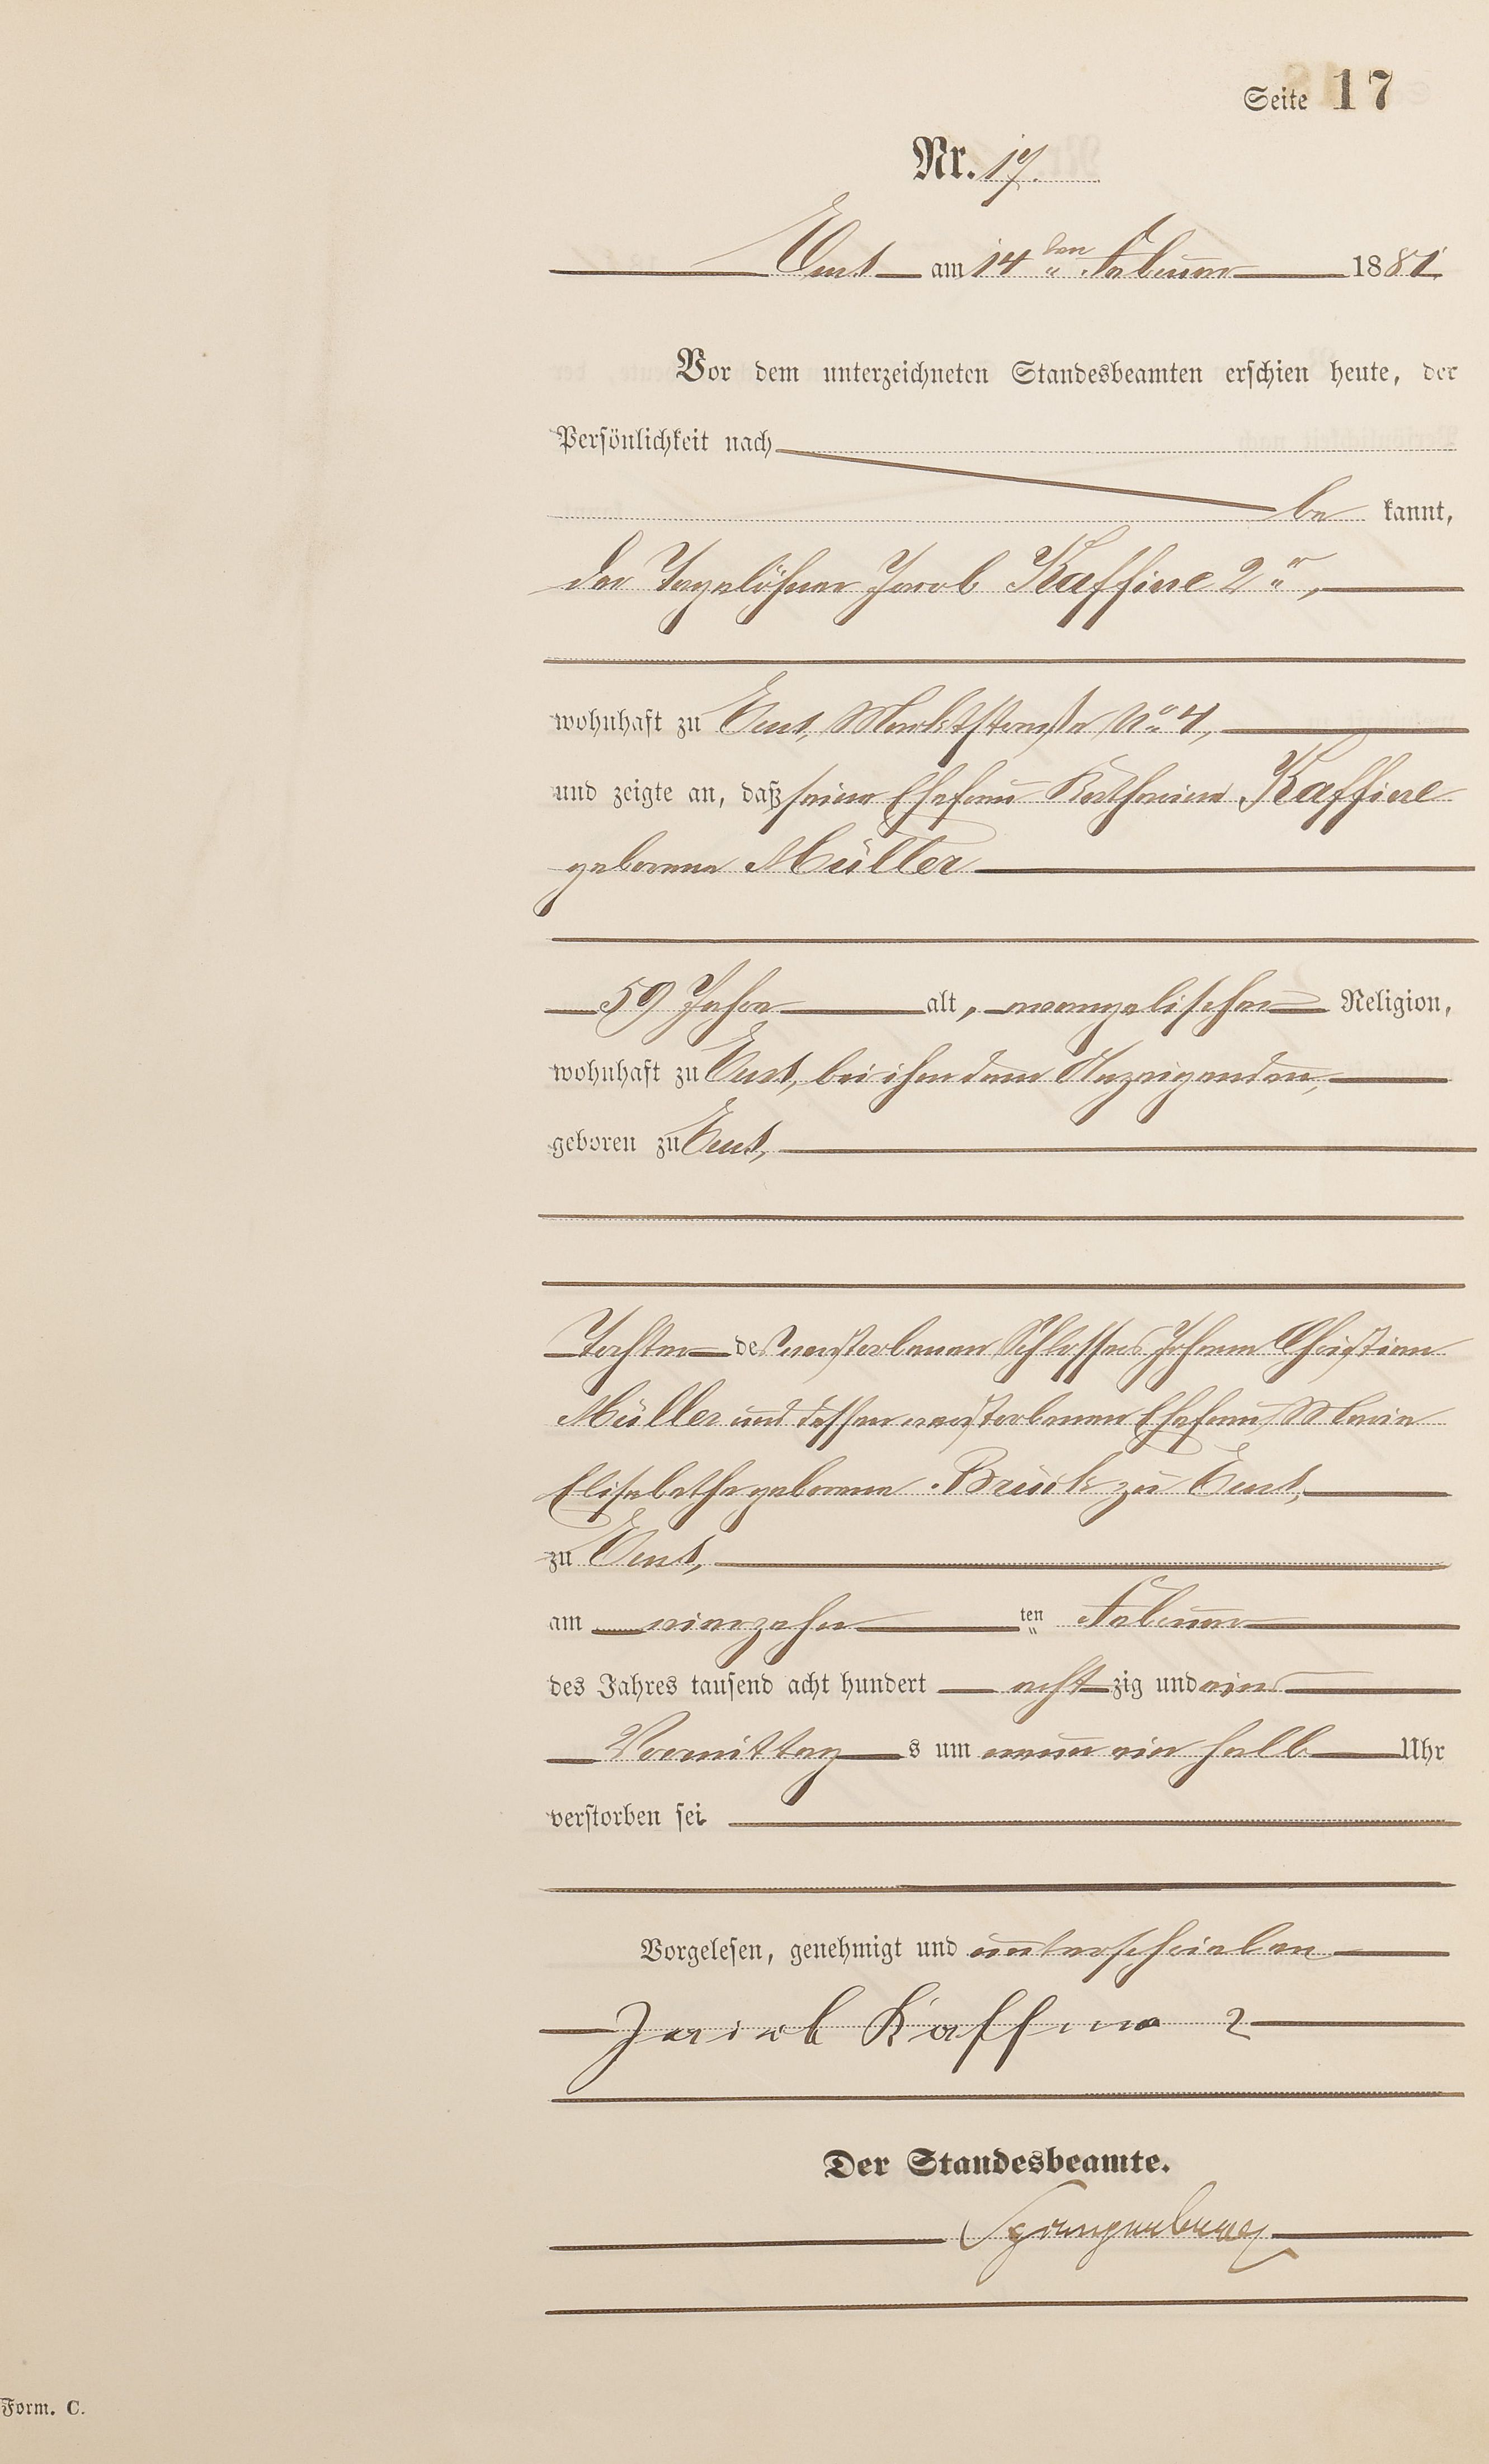 Seite 17
Nr. 17.
Ems am 14ten Februar 1881
Vor dem unterzeichneten Standesbeamten erschien heute, der
Persönlichkeit nach
be kannt,
der Tagelöhner Jacob Kaffine 2r,
wohnhaft zu Ems, Marktstraße No 4,
und zeigte an, daß seine Ehefrau Katharina Kaffine
geborene Müller
59 Jahre alt, evangelischer Religion,
wohnhaft zu Ems, bei ihm dem Anzeigenden,
geboren zu Ems,
Tochter des verstorbenen Schlossers Johann Christian
Müller und dessen verstorbenen Ehefrau Maria
Elisabetha geborene Brück zu Ems,
zu Ems,
am vierzehn ten Februar
des Jahres tausend acht hundert acht zig und eins
Vormittag s um neun ein halb Uhr
verstorben sei.
Vorgelesen, genehmigt und unterschrieben
Jacob Kaffine 2
Der Standesbeamte.
Spangenberg
Form. C.